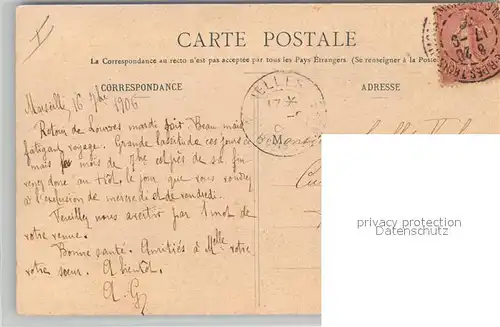 CARTE POSTALE
La Correspondance au recto n'est pas acceptée par tous les Pays Étrangers. (Se renseigner à la Poste
CORRESPONDANCE
ADRESSE
Marseille, 16 7bre 1906
Retour de Lourdes mardi soir. Beau mais
fatigant voyage. Grande lassitude ces jours ci
mais le mois de 7bre est près de sa fin
venez donc au + tôt, le jour que vous voudrez
à l'exclusion de mercredi et de vendredi.
Veuillez nous avertir par 1 mot de
votre venue.
Bonne santé. Amitiés à Melle votre
votre sœur. A bientôt.
A. G.
M
privacy protection
Datenschutz